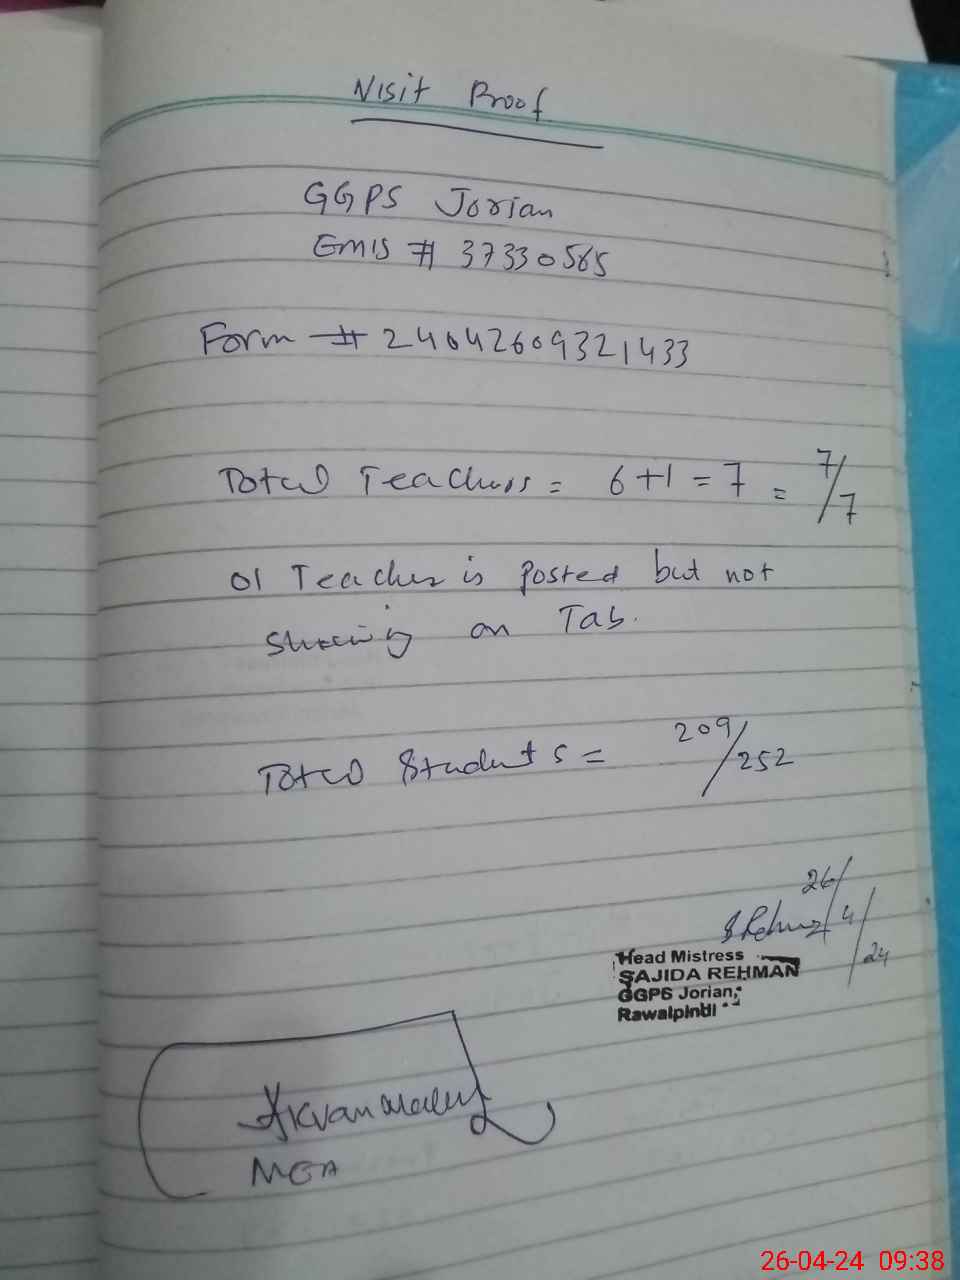 Visit Proof
GGPS Jorian
EMIS # 37330565
Form # 24042609321433
Total Teachers = 6+1 = 7 = 7/7
01 Teacher is posted but not
showing on Tab.
Total Students = 209/252
26/4/24
S Rehman
Head Mistress
SAJIDA REHMAN
GGPS Jorian,
Rawalpindi
MEA
26-04-24 09:38